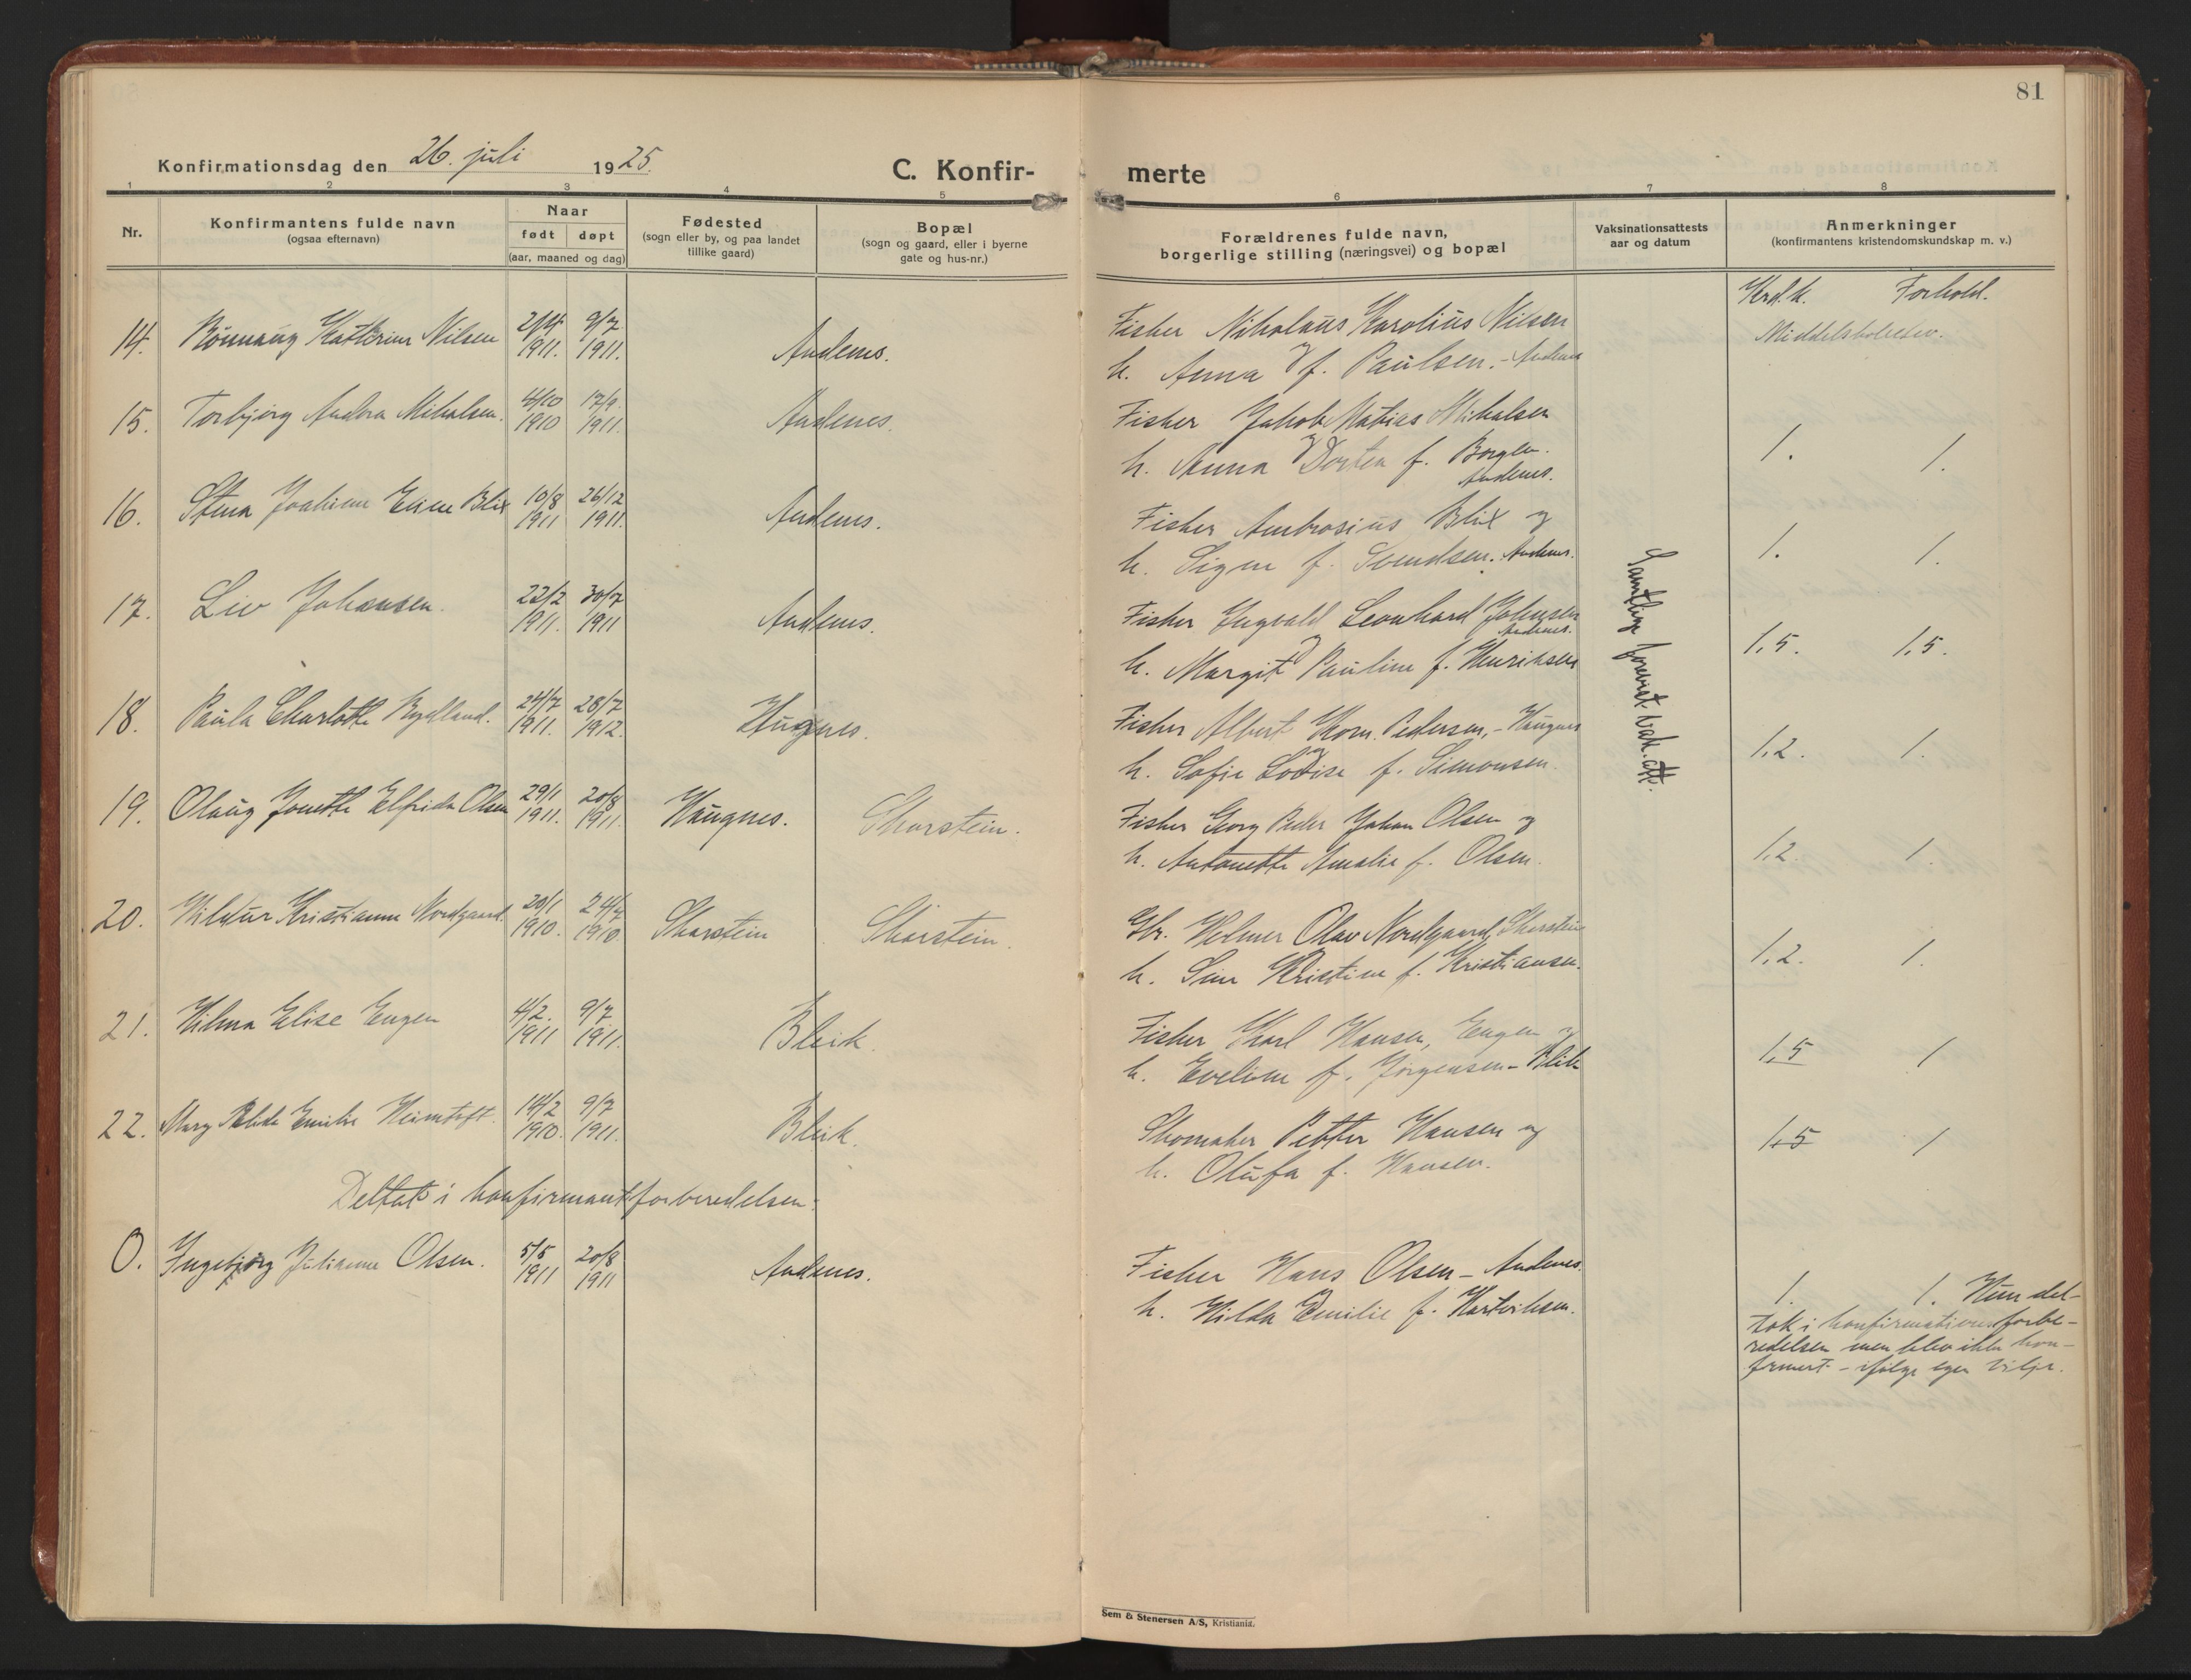 81
Konfirmationsdag den 26. juli 1925.
C. Konfir-
merte
1 2 3 4 5 6 7 8
Nr.
Konfirmantens fulde navn
(ogsaa efternavn)
Naar
født døpt
(aar, maaned og dag)
Fødested
(sogn eller by, og paa landet
tillike gaard)
Bopæl
(sogn og gaard, eller i byerne
gate og hus-nr.)
Forældrenes fulde navn,
borgerlige stilling (næringsvei) og bopæl
Vaksinationsattests
aar og datum
Anmerkninger
(konfirmantens kristendomskundskap m. v.)
Krd.k. Forhold.
Samtlige forevist vak. att.
14. Rønnaug Katherine Nilsen 2/4 1911. 9/7 1911. Andenes.
Fisker Nikolaus Karolius Nilsen
og
h. Anna f. Paulsen. - Andenes
Middelskoleelev.
15. Torbjørg Andrea Mikalsen. 4/10 1910 17/9 1911. Andenes.
Fisker Jakob Matias Mikalsen
og
h. Anna Dortea f. Borgen.
Andenes.
1. 1.
16. Stena Joakime Elise Blix 10/8 1911 26/12 1911. Andenes.
Fisker Ambrosius Blix og
h. Signe f. Svendsen. Andenes.
1. 1.
17. Liv Johansen. 22/2 1911. 30/7 1911 Andenes.
Fisker Ingvald Leonhard Johansen
Andenes.
og
h. Margit Pauline f. Henriksen
1,5. 1,5.
18. Paula Charlotte Rydland. 24/7 1911. 28/7 1912. Haugnes.
Fisker Albert Korn. Pedersen, - Haugnes
og
h. Sofie Lovise f. Simonsen.
1,2. 1.
19. Olaug Jonette Elfrida Olsen 29/1 1911. 20/8 1911. Haugnes. Skarstein.
Fisker Georg Peder Johan Olsen og
h. Antonette Amalie f. Olsen.
1,2. 1.
20. Hildur Kristianne Nordgaard. 20/1 1910. 24/7 1910 Skarstein Skarstein.
Gbr. Helmer Olav Nordgaard, Skarstein
h. Sine Kristine f. Kristiansen.
1,2. 1.
21. Hilma Elise Engen 4/2. 1911 9/7 1911. Bleik.
Fisker Karl Hansen, Engen og
h. Eveline f. Jørgensen - Bleik
1,5 1
22. Mary Emilie Heimtoft. 14/2 1910. 9/7 1911. Bleik.
Skomaker Petter Hansen og
h. Olufa f. Hansen.
1,5 1
Deltat i konfirmantforberedelsen:
O. Ingebjørg Julianne Olsen. 5/5 1911 20/8 1911 Andenes.
Fisker Hans Olsen - Andenes.
og
h. Hilda Emilie f. Hartviksen.
1. 1. Hun del-
tok i konfirmationsforbe-
redelsen men blev ikke kon-
firmert - ifølge egen vilje.
Sem & Stenersen A/S, Kristiania.